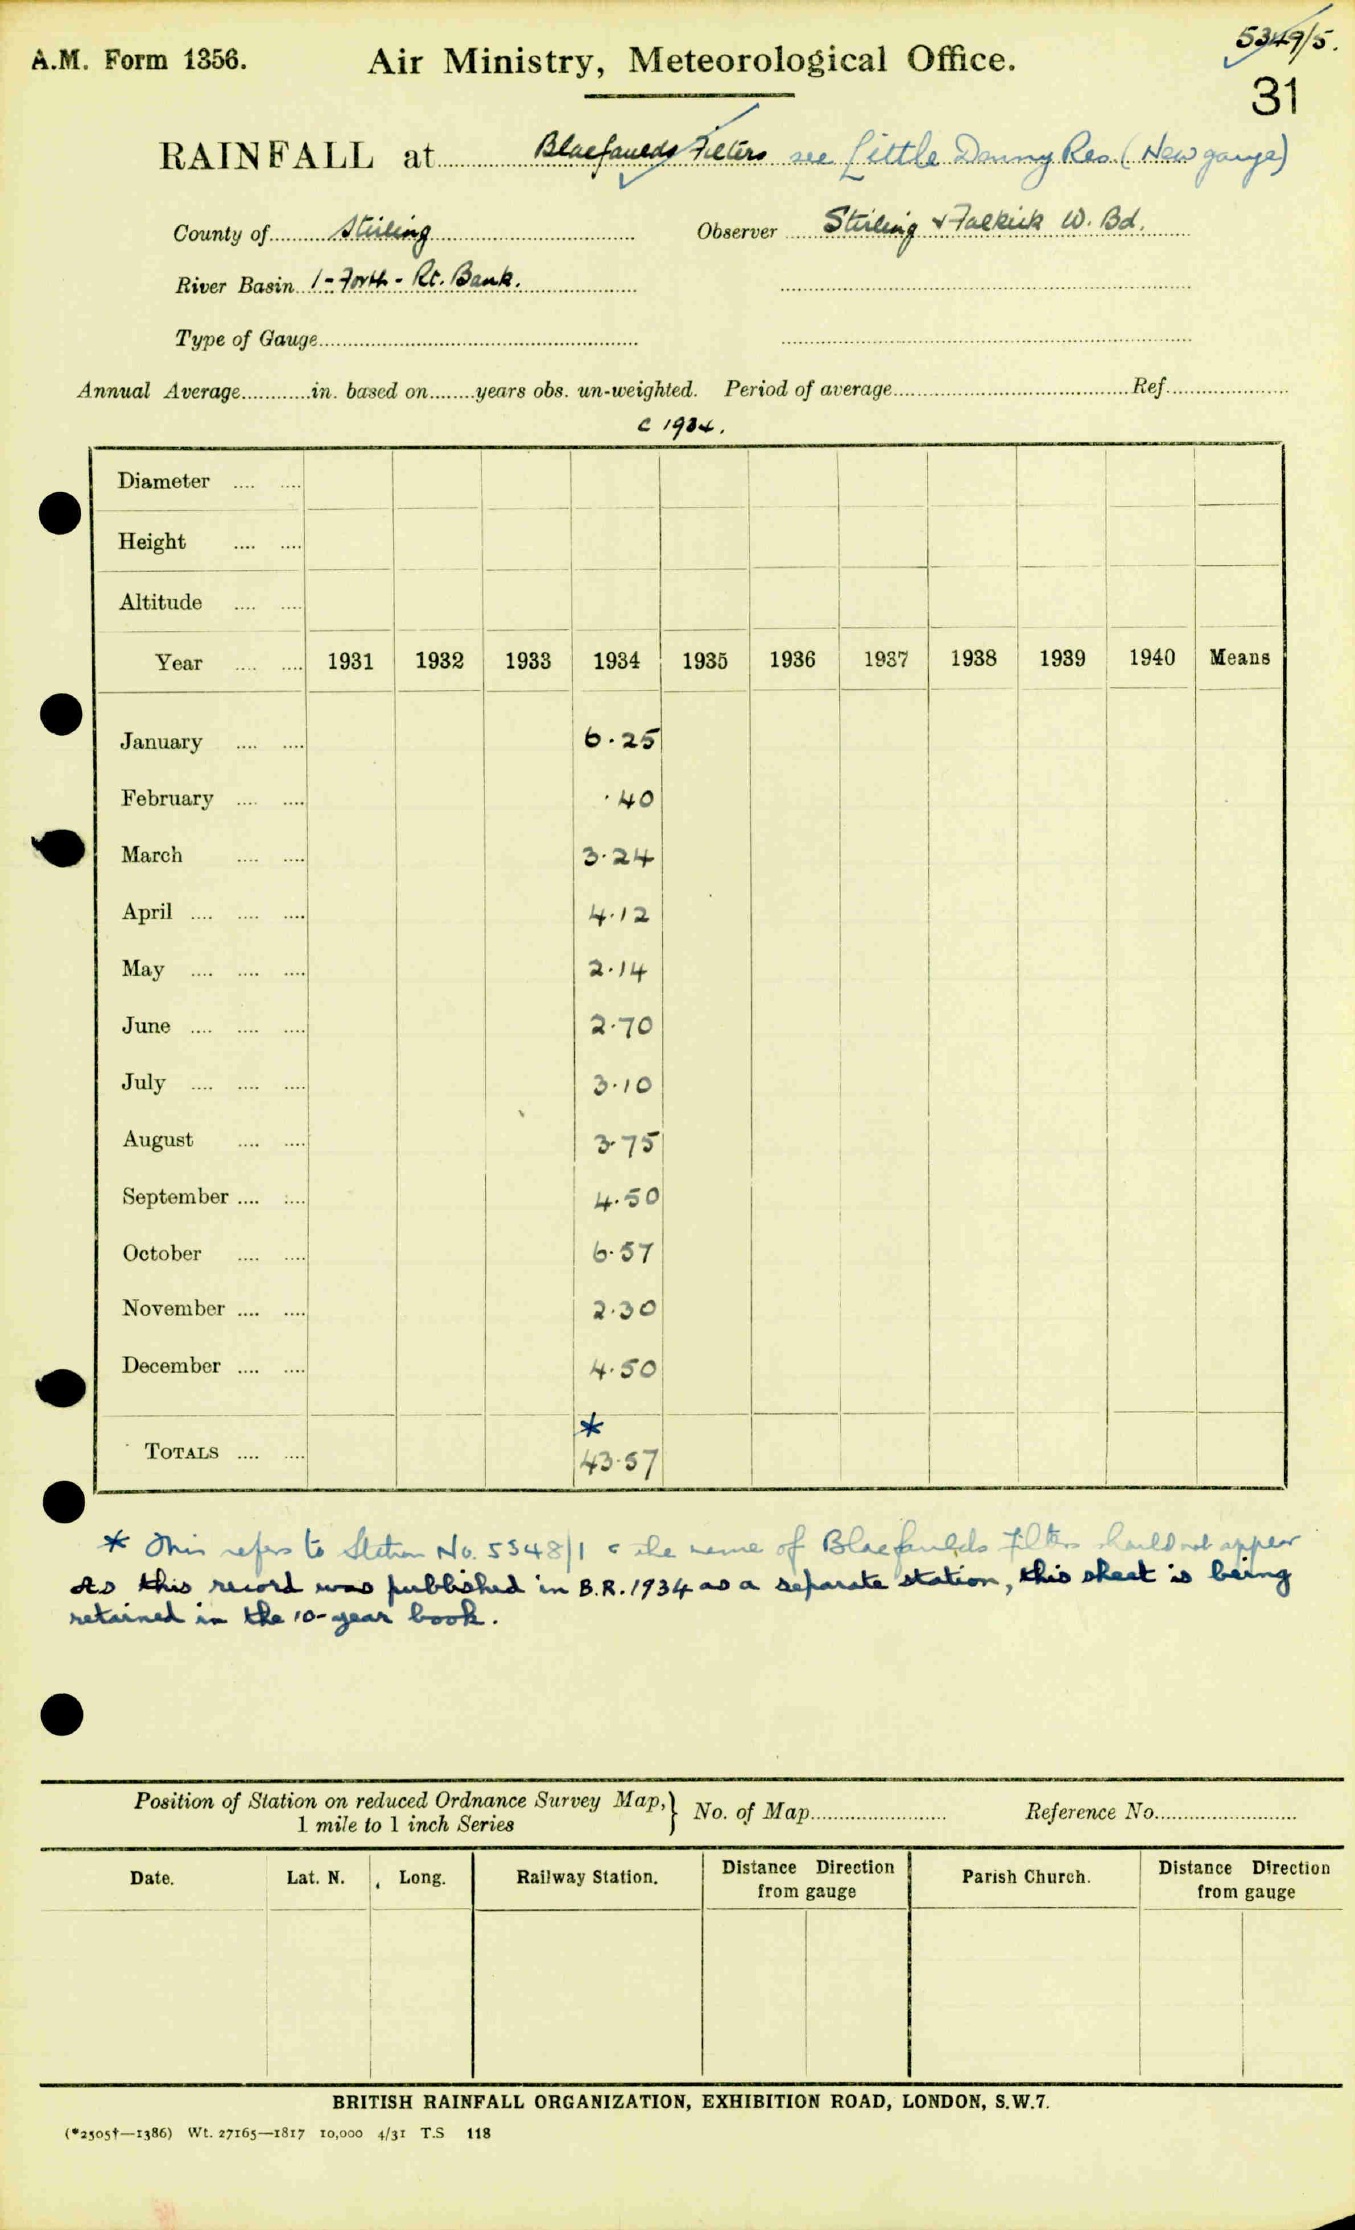 A.M. Form 1356.
Air Ministry, Meteorological Office.
5349/5.
31
RAINFALL at Blaefaulds Filters see Little Denny Res. (New gauge)
County of Stirling
Observer Stirling & Falkirk W. Bd.
River Basin 1 - Forth - Rt. Bank.
Type of Gauge
Annual Average in. based on years obs. un-weighted. Period of average Ref.
c 1934.
Diameter
Height
Altitude
Year 1931 1932 1933 1934 1935 1936 1937 1938 1939 1940 Means
January 6.25
February .40
March 3.24
April 4.12
May 2.14
June 2.70
July 3.10
August 3.75
September 4.50
October 6.57
November 2.30
December 4.50
*
TOTALS 43.57
* This refers to Station No. 5348/1 & the name of Blaefaulds Filters should not appear
As this record was published in B.R. 1934 as a separate station, this sheet is being
retained in the 10-year book.
Position of Station on reduced Ordnance Survey Map,
1 mile to 1 inch Series
No. of Map
Reference No.
Date. Lat. N. Long. Railway Station. Distance Direction from gauge Parish Church. Distance Direction from gauge
BRITISH RAINFALL ORGANIZATION, EXHIBITION ROAD, LONDON, S.W.7.
(*2505†—1386) Wt. 27165—1817 10,000 4/31 T.S 118